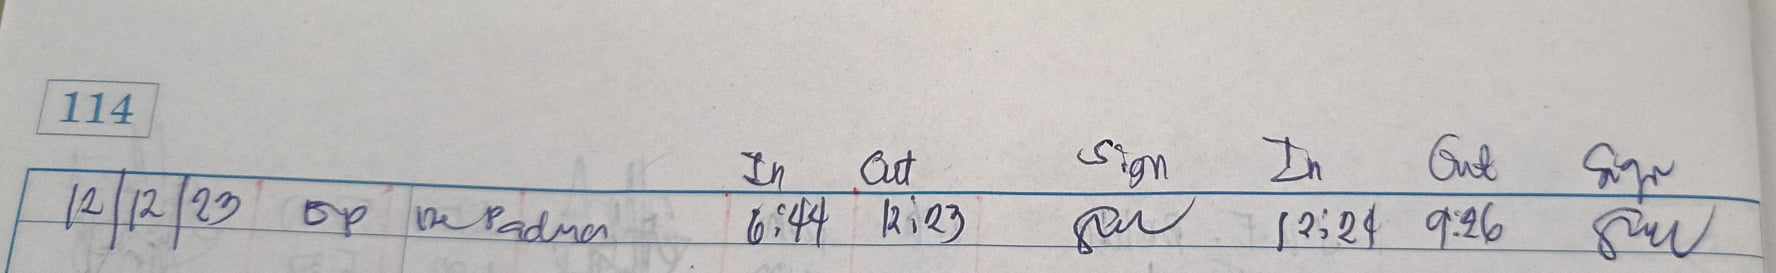 114
In Out Sign In Out Sign
12/12/23 Padma 6:44 12:23 12:24 9:26